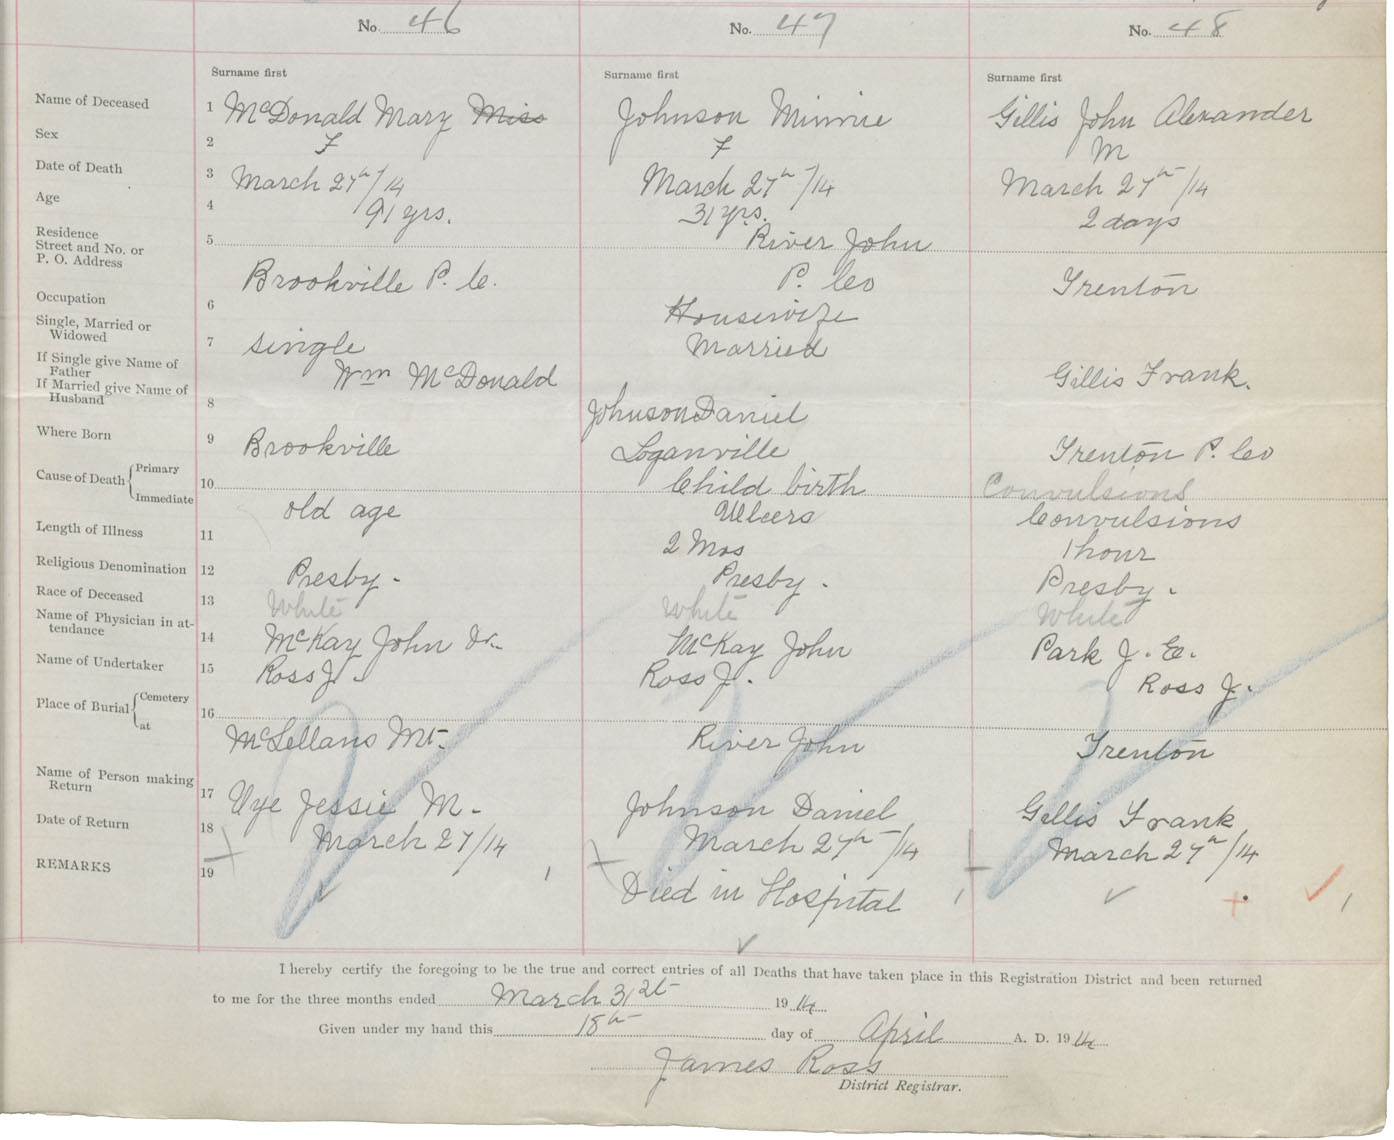 No. 46 No. 47 No. 48
Surname first Surname first Surname first
Name of Deceased 1 McDonald Mary Miss Johnson Minnie Gillis John Alexander
Sex 2 F F M
Date of Death 3 March 27th/14 March 27th/14 March 27th/14
Age 4 91 yrs. 31 yrs. 2 days
Residence
Street and No. or 5 River John
P. O. Address Brookville P. C. P. Co Trenton
Occupation 6 Housewife
Single, Married or
Widowed 7 single Married
If Single give Name of
Father Wm McDonald Gillis Frank.
If Married give Name of
Husband 8 Johnson Daniel
Where Born 9 Brookville Loganville Trenton P. Co
Cause of Death Primary 10 Child birth Convulsions
Immediate old age Ulcers Convulsions
Length of Illness 11 2 Mos 1 hour
Religious Denomination 12 Presby. Presby. Presby.
Race of Deceased 13 White White White
Name of Physician in at-
tendance 14 McKay John Dr. McKay John Park J. E.
Name of Undertaker 15 Ross J. Ross J. Ross J.
Place of Burial Cemetery 16
at McLellans Mt. River John Trenton
Name of Person making
Return 17 Jessie M. Johnson Daniel Gillis Frank
Date of Return 18 March 27/14 March 27th/14 March 27th/14
REMARKS 19 Died in Hospital
I hereby certify the foregoing to be the true and correct entries of all Deaths that have taken place in this Registration District and been returned
to me for the three months ended March 31st 1914
Given under my hand this 18th day of April A. D. 1914
James Ross
District Registrar.